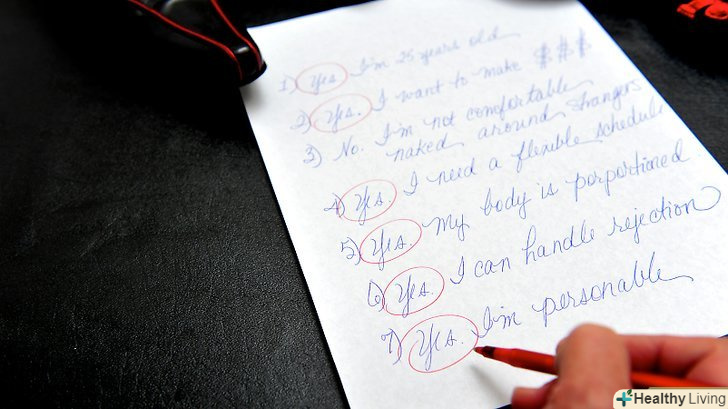 1) Yes I'm 25 years old
2) Yes. I want to make $$$
3) No. I'm not comfortable
naked around strangers
4) Yes. I need a flexible schedule
5) Yes. My body is porportioned
6) Yes. I can handle rejection
7) Yes. I'm personable
Healthy Living